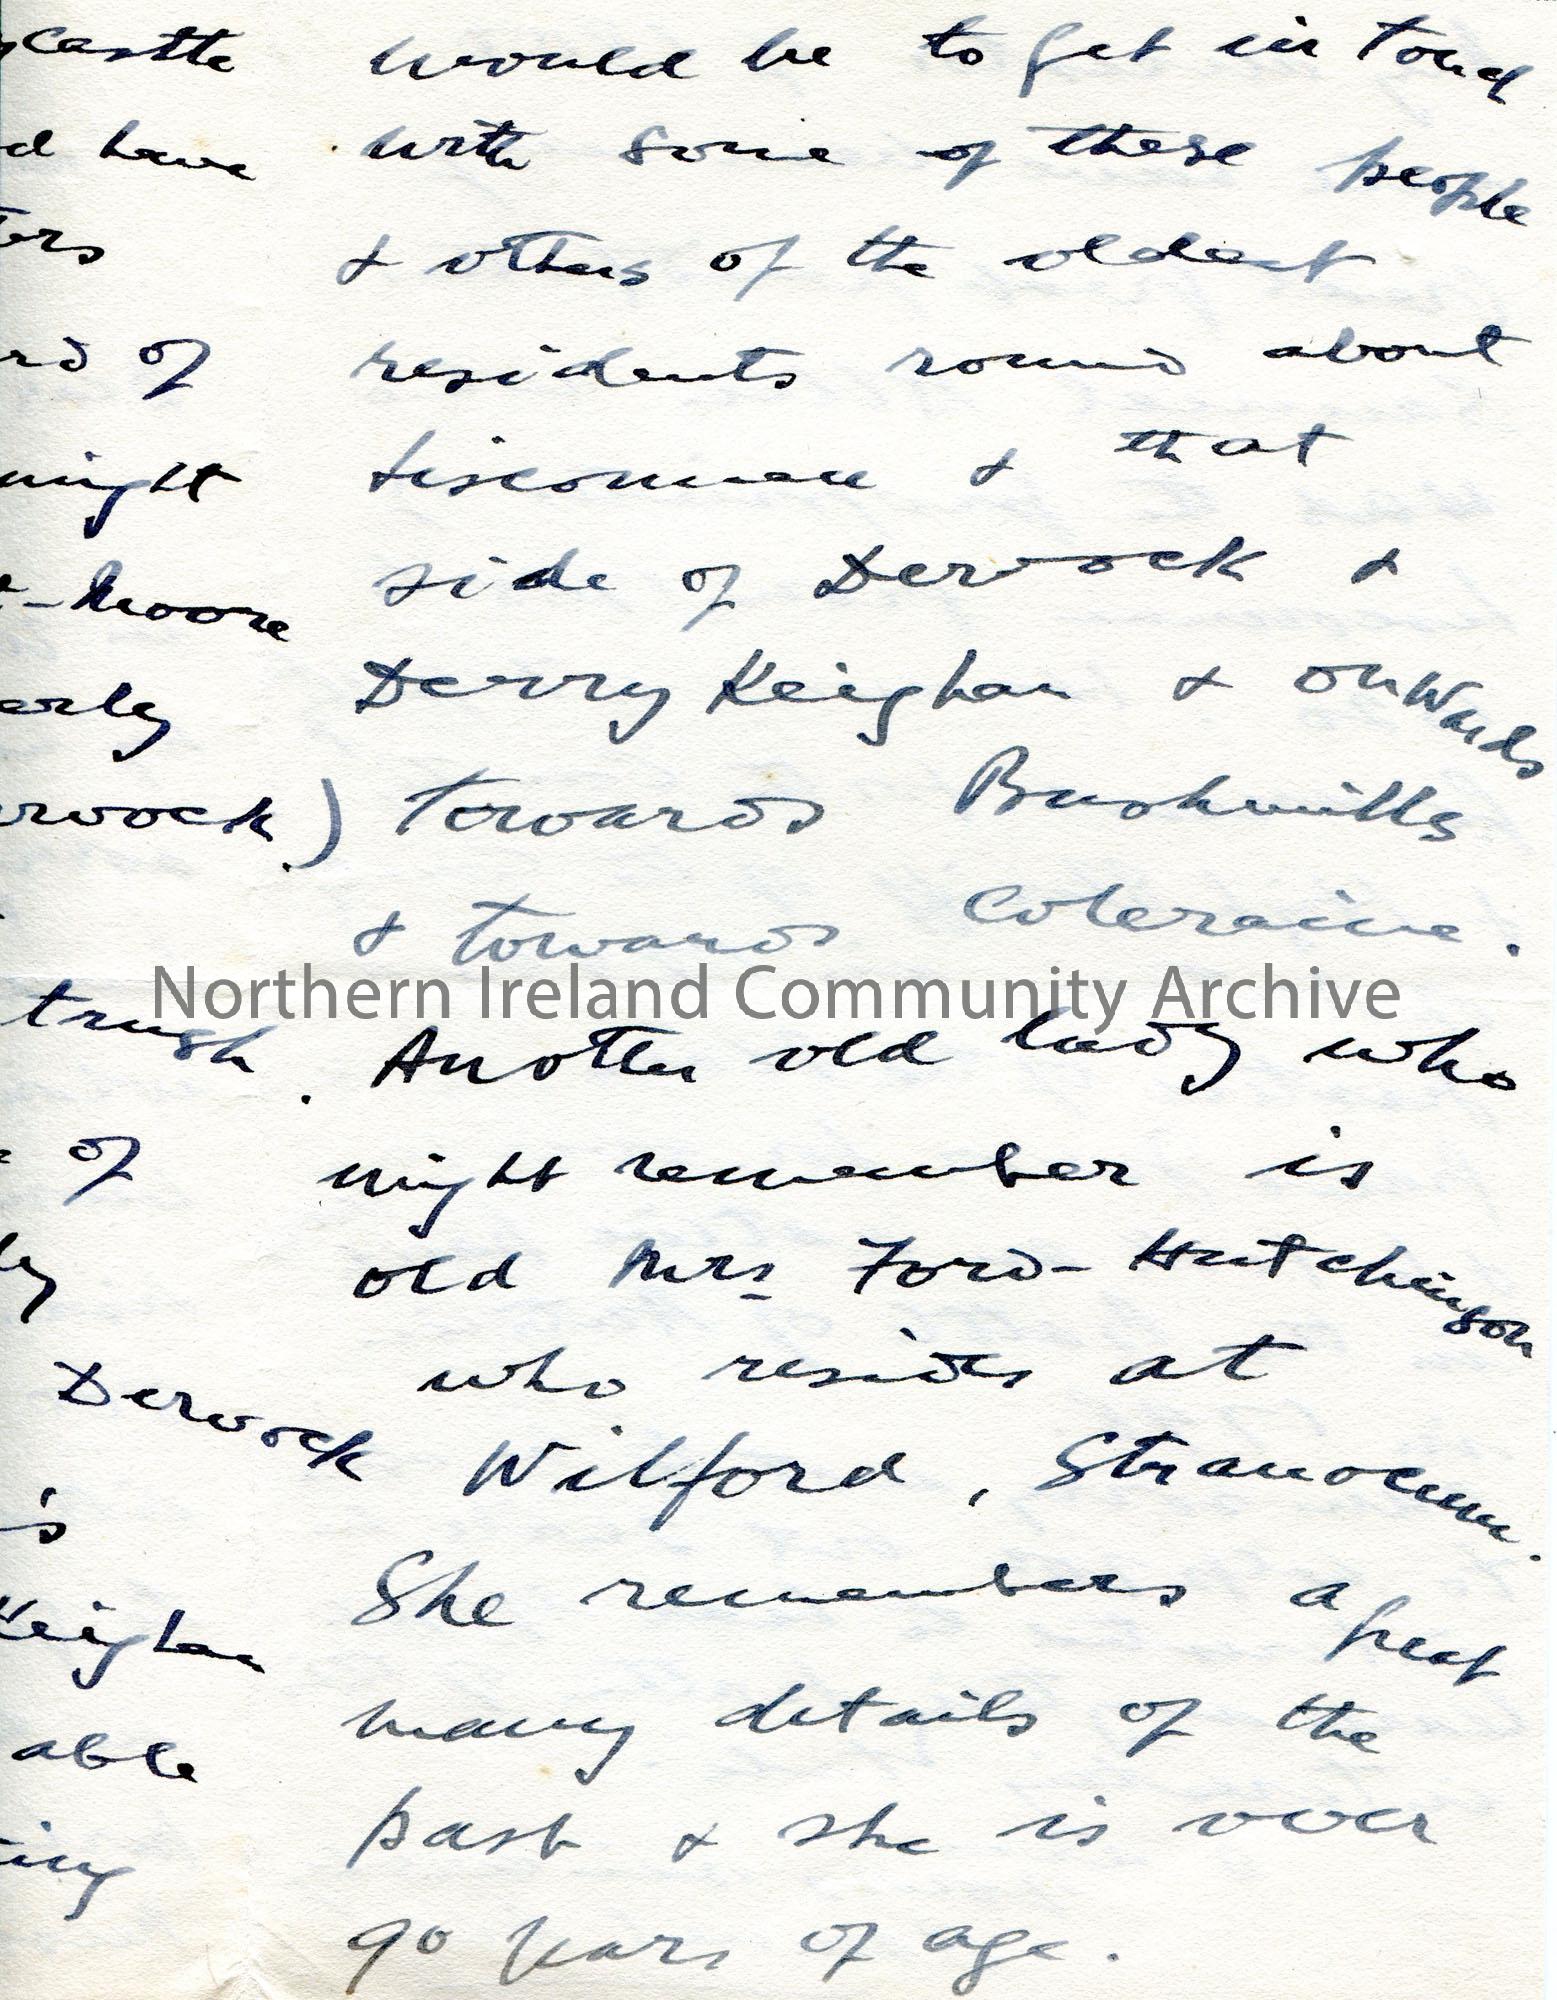 castle
d have
ters
rd of
might
t-Moore
erley
rvock.)
trush.
e of
ley
Dervock
is
Keighan
able
ing
would be to get in touch
with some of these people
& others of the oldest
residents round about
Lisconnan & that
side of Dervock &
Derry Keighan & onwards
towards Bushmills
& towards Coleraine.
Another old lady who
might remember is
old Mrs Ford-Hutchinson
who resides at
Wilford, Stranocum.
She remembers a great
many details of the
past & she is over
90 years of age.
Northern Ireland Community Archive